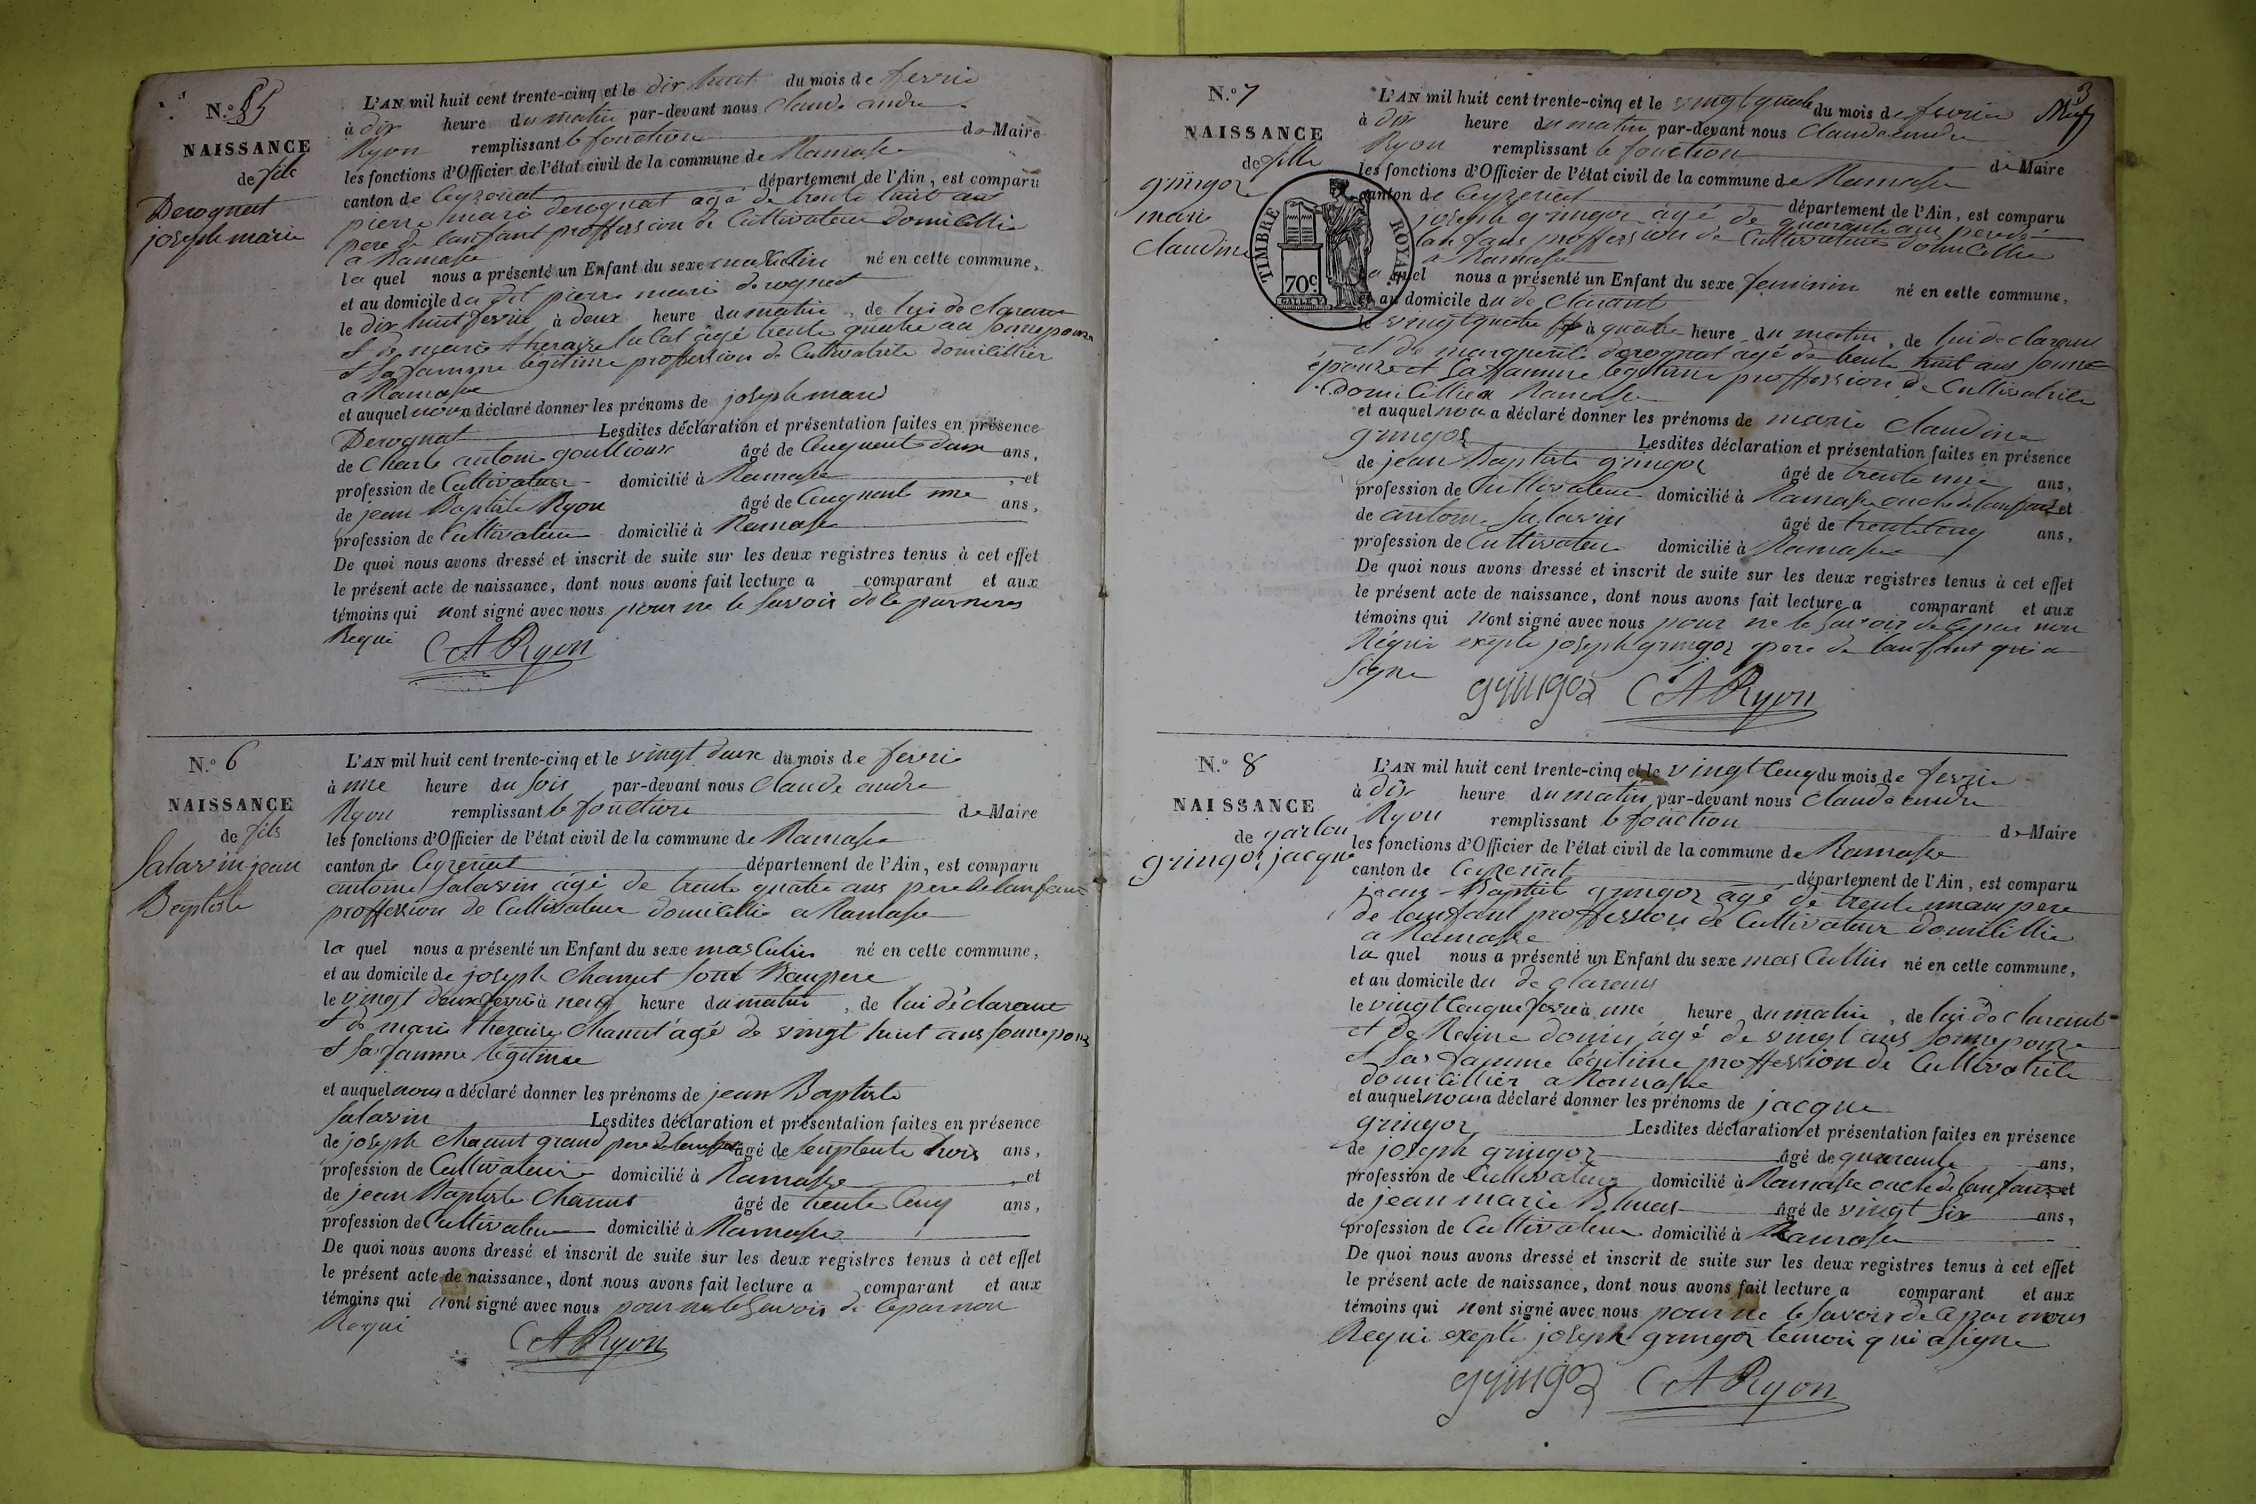 N.º 55
NAISSANCE
de fils
Derognat
joseph marie
L'AN mil huit cent trente-cinq et le dix huit du mois de fevrie
à dix heure du matin par-devant nous claude andre
Ryon remplissant le fonction de Maire
les fonctions d'Officier de l'état civil de la commune de Ramasse
canton de Ceyzeriat département de l'Ain, est comparu
pierre marie derognat agé de trente huit ans
pere de lanfant proffession de Cultivateur Domicillie
a Ramasse
la quel nous a présenté un Enfant du sexe masculin né en cette commune,
et au domicile du dit pierre marie derognat
le dix huit fevrie à deux heure du matin, de lui de clarant
et de marie theraise agé trente quatre an son epouse
et sa famme légitime proffession de Cultivatrite domicillier
a Ramasse
et auquel nous a déclaré donner les prénoms de joseph marie
Derognat Lesdites déclaration et présentation faites en présence
de Charle antoine goullioux âgé de Cinquente deux ans,
profession de Cultivateur domicilié à Ramasse, et
de jean Baptiste Ryon âgé de Cinquante une ans,
profession de Cultivateur domicilié à Ramasse
De quoi nous avons dressé et inscrit de suite sur les deux registres tenus à cet effet
le présent acte de naissance, dont nous avons fait lecture a comparant et aux
témoins qui nont signé avec nous pour ne le savoir de ce par nous
Requi
CARyon
N.º 6
NAISSANCE
de fils
Salavin jean
Baptiste
L'AN mil huit cent trente-cinq et le vingt deux du mois de fevrie
à une heure du soir par-devant nous claude andre
Ryon remplissant le fonction de Maire
les fonctions d'Officier de l'état civil de la commune de Ramasse
canton de Ceyzeriat département de l'Ain, est comparu
antoine Salavin agé de trente quatre ans pere de lanfant
proffession de Cultivateur domicillie a Ramasse
la quel nous a présenté un Enfant du sexe masCulin né en cette commune,
et au domicile de joseph Chanut sont Beaupere
le vingt deux fevrie à neuf heure du matin, de lui déclarant
et de marie theraise Chanut agé de vingt huit ans son epouse
et sa famme légitime
et auquel nous a déclaré donner les prénoms de jean Baptiste
Salavin Lesdites déclaration et présentation faites en présence
de joseph Chanut grand pere de lanfant âgé de Septente trois ans,
profession de Cultivateur domicilié à Ramasse, et
de jean Baptiste Chanut âgé de trente Cinq ans,
profession de Cultivateur domicilié à Ramasse
De quoi nous avons dressé et inscrit de suite sur les deux registres tenus à cet effet
le présent acte de naissance, dont nous avons fait lecture a comparant et aux
témoins qui nont signé avec nous pour ne le Savoir de ce par nou
Requi
CARyon
3
N.º 7
NAISSANCE
de fille
gringoz
marie
Claudine
TIMBRE ROYAL
70c
L'AN mil huit cent trente-cinq et le vingt quatre du mois de fevrie
à dix heure du matin, par-devant nous Claude andre
Ryon remplissant le fonction de Maire
les fonctions d'Officier de l'état civil de la commune de Ramasse
canton de Ceyzeriat département de l'Ain, est comparu
joseph gringoz agé de quarante ans pere de
lanfans proffession de Cultivateur domicillie
a Ramasse
la quel nous a présenté un Enfant du sexe feminin né en cette commune,
et au domicile du de Clarant
le vingt quatre à quatre heure du matin, de lui de clarant
et de marguerite derognat agé de trente huit ans sonne
épouze et sa famme légitime proffession de Cultivatrite
Domicillier a Ramasse
et auquel nous a déclaré donner les prénoms de marie Claudine
gringoz Lesdites déclaration et présentation faites en présence
de jean Baptiste gringoz âgé de trente une ans,
profession de Cultivateur domicilié à Ramasse oncle de lanfant et
de antoine Salavin âgé de trente Cinq ans,
profession de Cultivateur domicilié à Ramasse
De quoi nous avons dressé et inscrit de suite sur les deux registres tenus à cet effet
le présent acte de naissance, dont nous avons fait lecture a comparant et aux
témoins qui nont signé avec nous pour ne le Savoir de ce par nou
Réquis exepte joseph gringoz pere de lanfant qui a
Signe
gringoz CARyon
N.º 8
NAISSANCE
de garson
gringoz jacque
L'AN mil huit cent trente-cinq et le vingt Cinq du mois de fevrie
à dix heure du matin, par-devant nous Claude andre
Ryon remplissant le fonction de Maire
les fonctions d'Officier de l'état civil de la commune de Ramasse
canton de Ceyzeriat département de l'Ain, est comparu
jean Baptiste gringoz agé de trente un an pere
de lanfant proffession de Cultivateur domicillie
a Ramasse
la quel nous a présenté un Enfant du sexe masCullin né en cette commune,
et au domicile du de clarans
le vingt Cinque fevrie à une heure du matin, de lui de claraint
et de Rosine agé de vingt ans sonne epouze
et sas famme légitime proffession de Cultivatrite
domicillier a Ramasse
et auquel nous a déclaré donner les prénoms de jacque
gringoz Lesdites déclaration et présentation faites en présence
de joseph gringoz âgé de quarante ans,
profession de Cultivateur domicilié à Ramasse oncle de lanfant et
de jean marie âgé de vingt Six ans,
profession de Cultivateur domicilié à Ramasse
De quoi nous avons dressé et inscrit de suite sur les deux registres tenus à cet effet
le présent acte de naissance, dont nous avons fait lecture a comparant et aux
témoins qui nont signé avec nous pour ne le savoir de ce par nous
Requi exepte joseph gringoz temoin qui a signe
gringoz CARyon